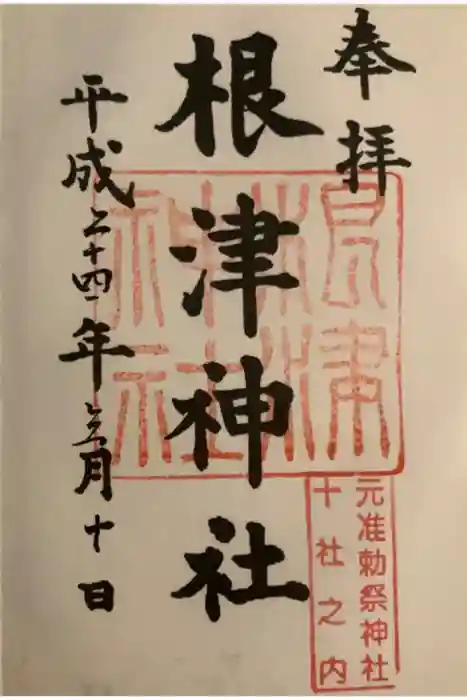 奉拝
根津神社
平成二十四年三月十日
根津
神社
元准勅祭神社
十社之内